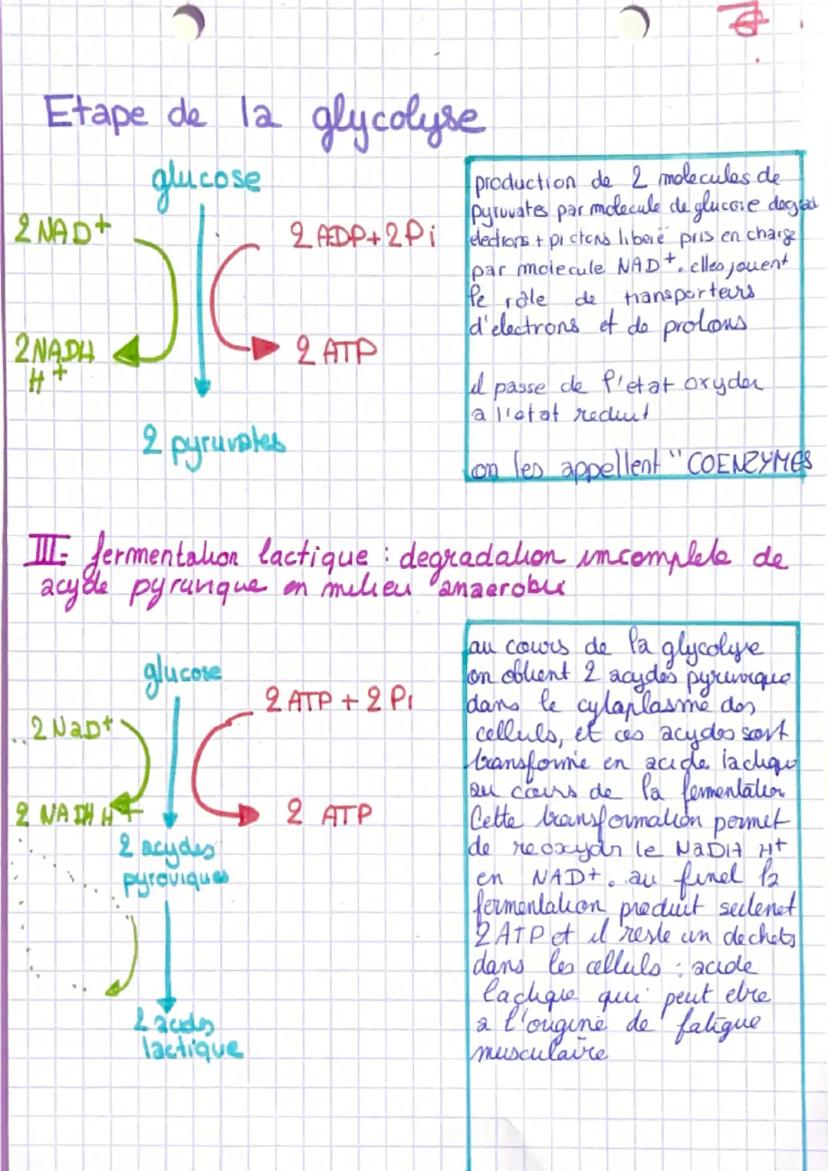 Etape de la glycolyse
glucose
2 NAD+
2 ADP + 2 Pi
2 NADH
H+
2 ATP
2 pyruvates
production de 2 molecules de
pyruvates par molecule de glucose degrad
electrons + protons liberé pris en charge
par molecule NAD+. elles jouent
le rôle de transporteurs
d'electrons et de protons
il passe de l'etat oxyder
a l'etat reduit
on les appellent "COENZYMES
III- fermentation lactique : degradation incomplete de
acyde pyruvique en milieu anaerobie
glucose
2 ATP + 2 Pi
2 NaD+
2 NADH H+
2 ATP
2 acydes
pyroviques
2 acides
lactique
au cours de la glycolyse
on obtient 2 acydes pyruvique
dans le cytaplasme des
celluls, et ces acydes sont
transformé en acide lactique
au cours de la fermentation
Cette transformation permet
de reoxyder le NaDH H+
en NAD+. au final la
fermentation produit seulenet
2 ATP et il reste un dechets
dans les celluls : acide
lactique qui peut etre
a l'origine de fatigue
musculaire